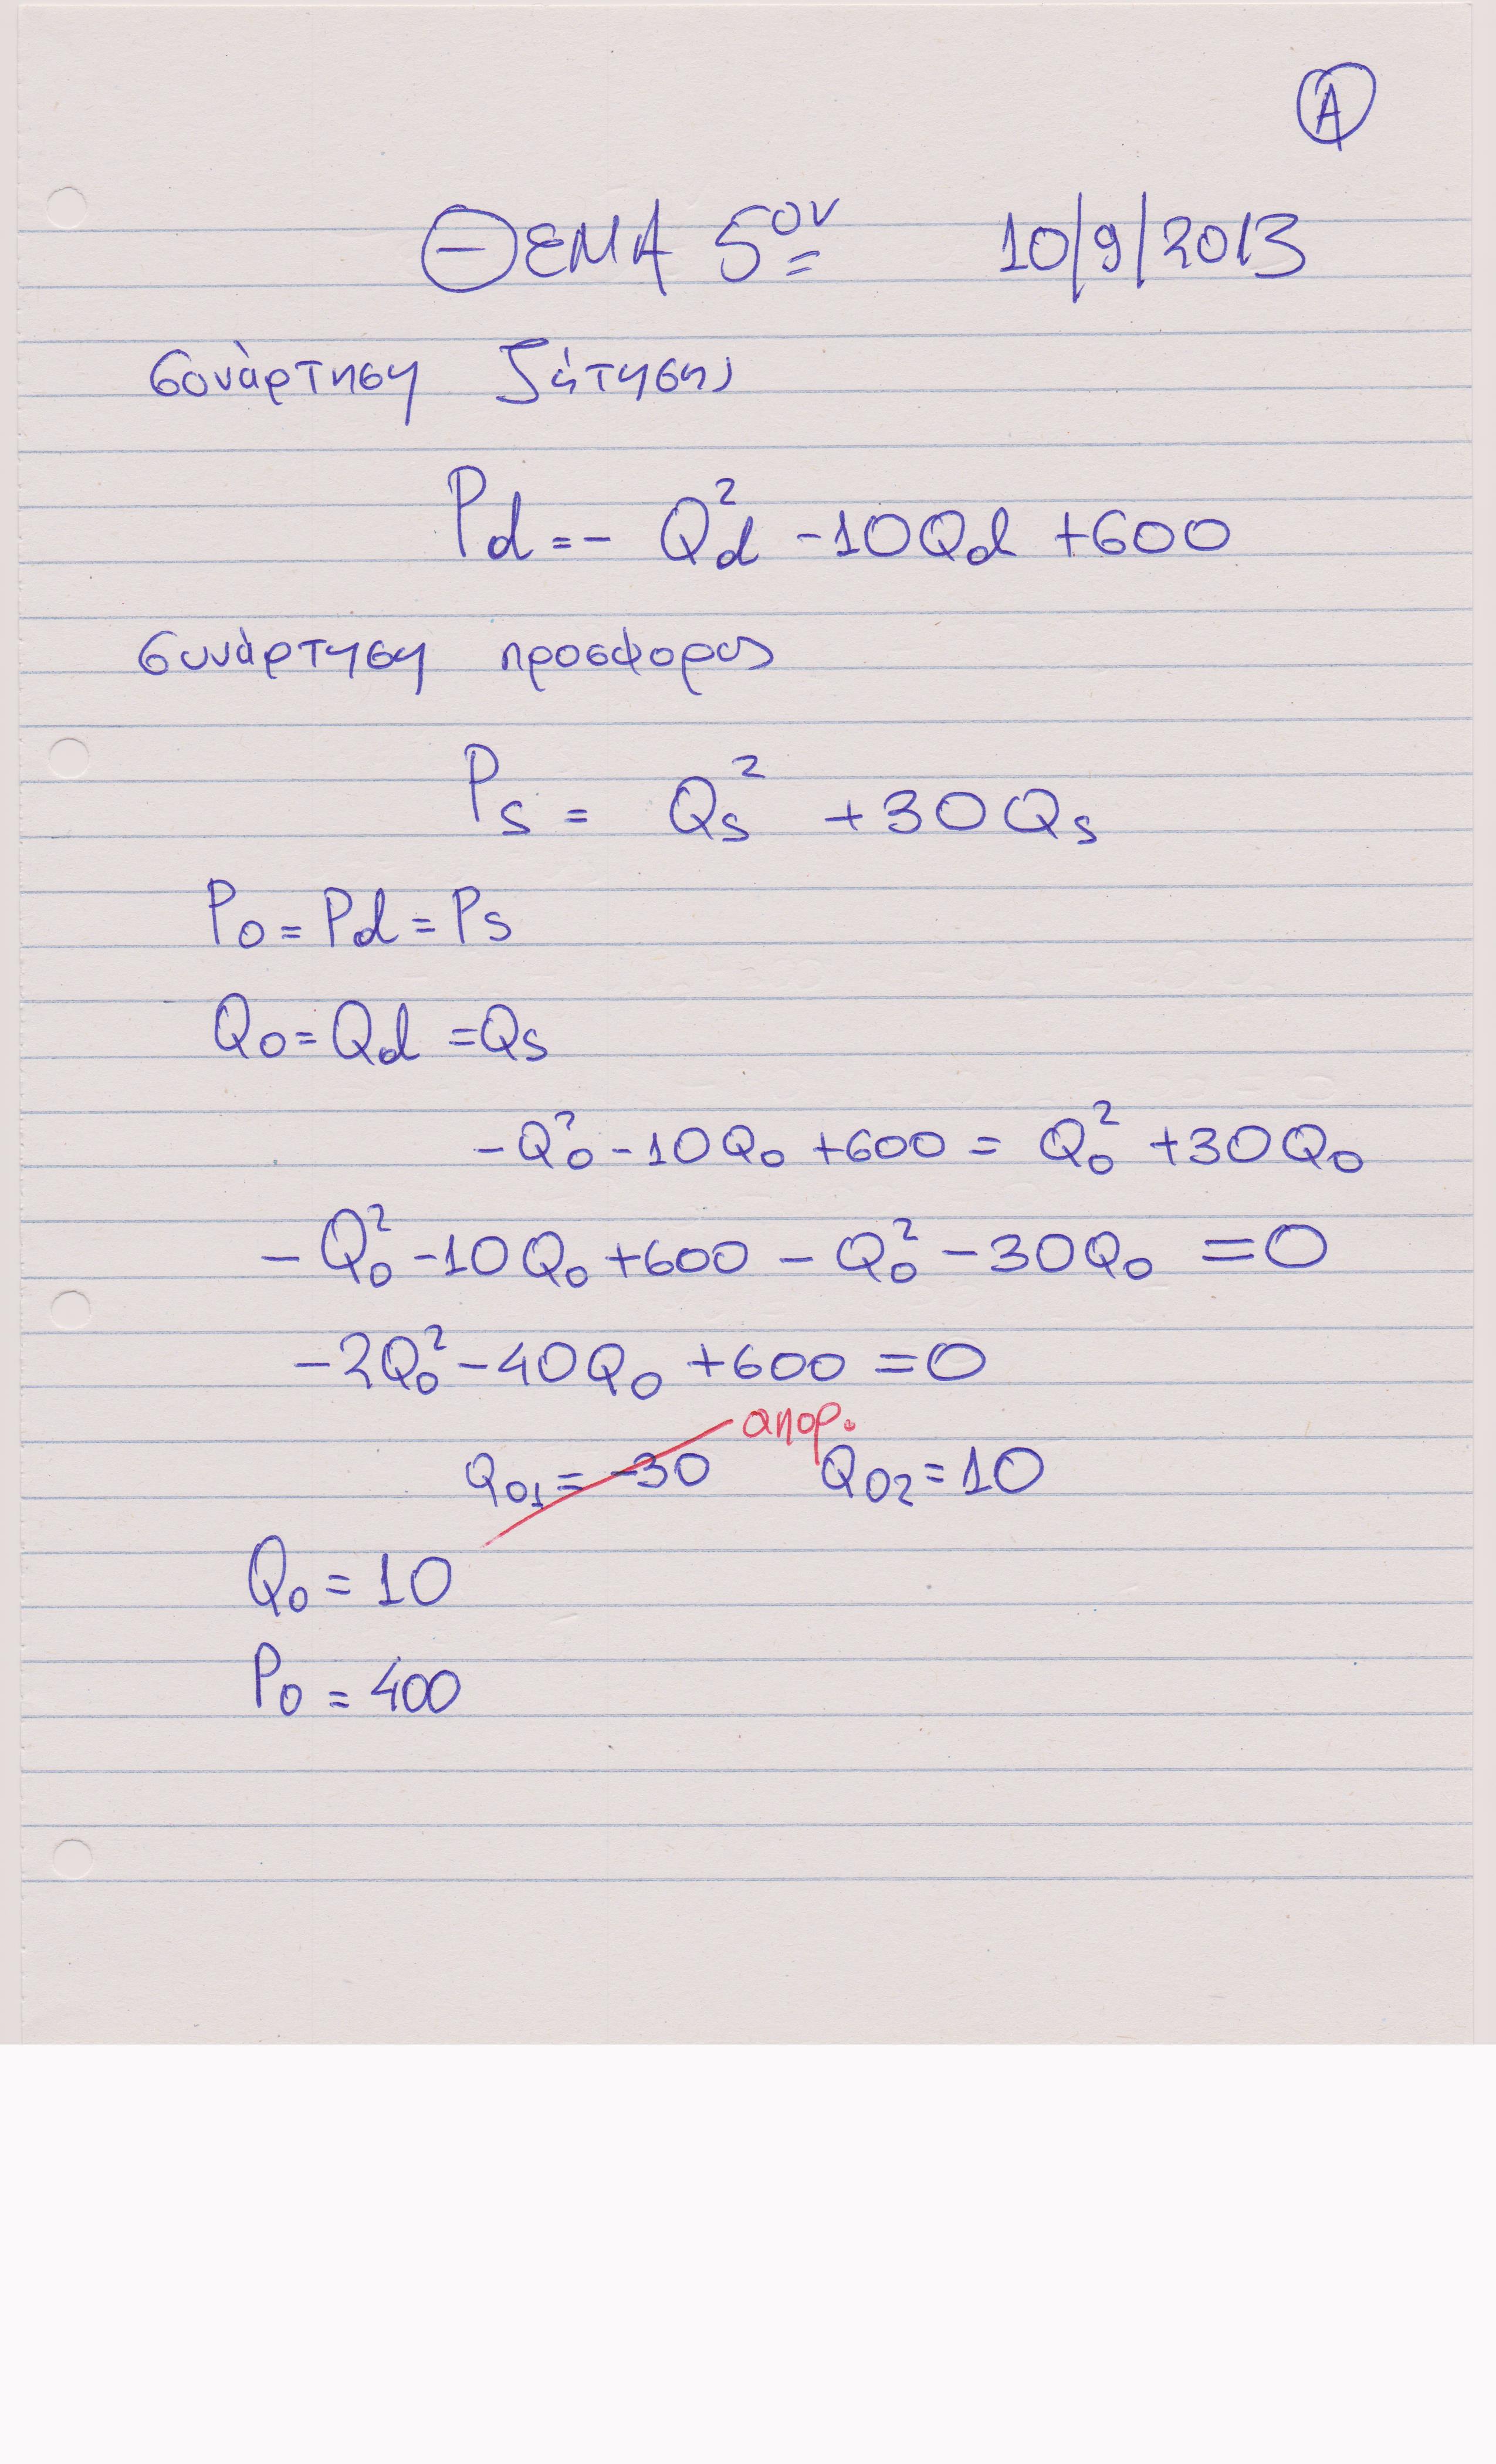 Α
ΘΕΜΑ 5ον 10/9/2013
συνάρτηση ζήτησης
Pd = - Qd² - 10Qd + 600
συνάρτηση προσφοράς
Ps = Qs² + 30Qs
Po = Pd = Ps
Qo = Qd = Qs
-Qo² - 10Qo + 600 = Qo² + 30Qo
- Qo² - 10Qo + 600 - Qo² - 30Qo = 0
-2Qo² - 40Qo + 600 = 0
απορ.
Qo1 = -30 Qo2 = 10
Qo = 10
Po = 400